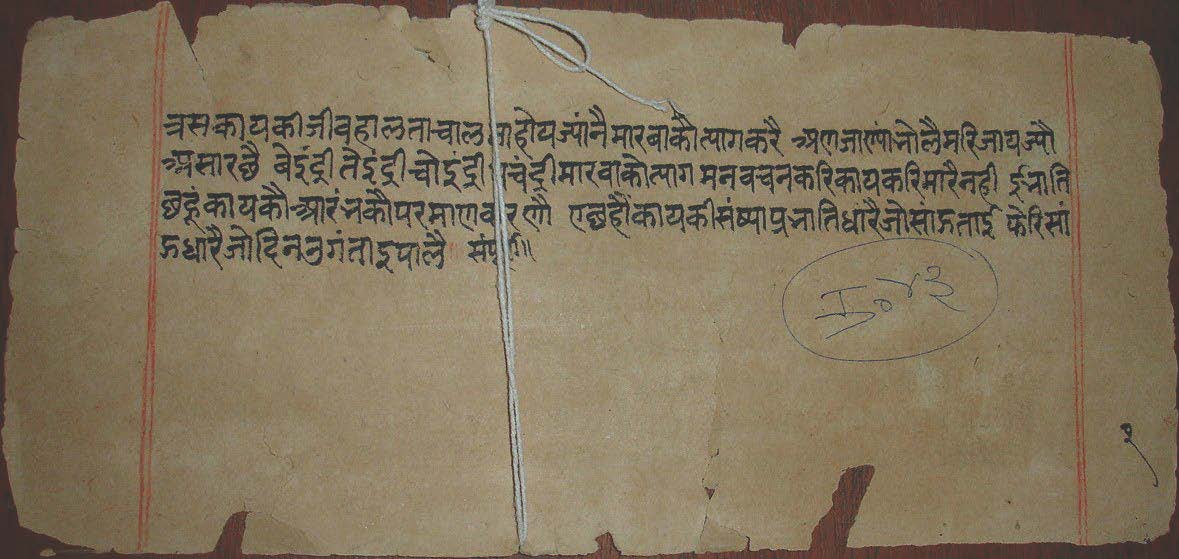 त्रसकायकी जीव हालता चाल होय ज्यांनै मारबाकौ त्याग करै अणजाण्यां भोलै मरि जाय ज्यौ
असार छै बेइंद्री तेइंद्री चोइंद्री पचंद्री मारबाकौ त्याग मन वचन करि काय करि मारै नही ईभाति
छहूं कायकौ आरंभकौ परमाण करणौ ए छहौ कायकी संष्या प्रभाति धारै जो सांऊ ताई फेरि सां
ऊ धारै जो दिन नुगंताइ पालै संपूर्ण॥
१